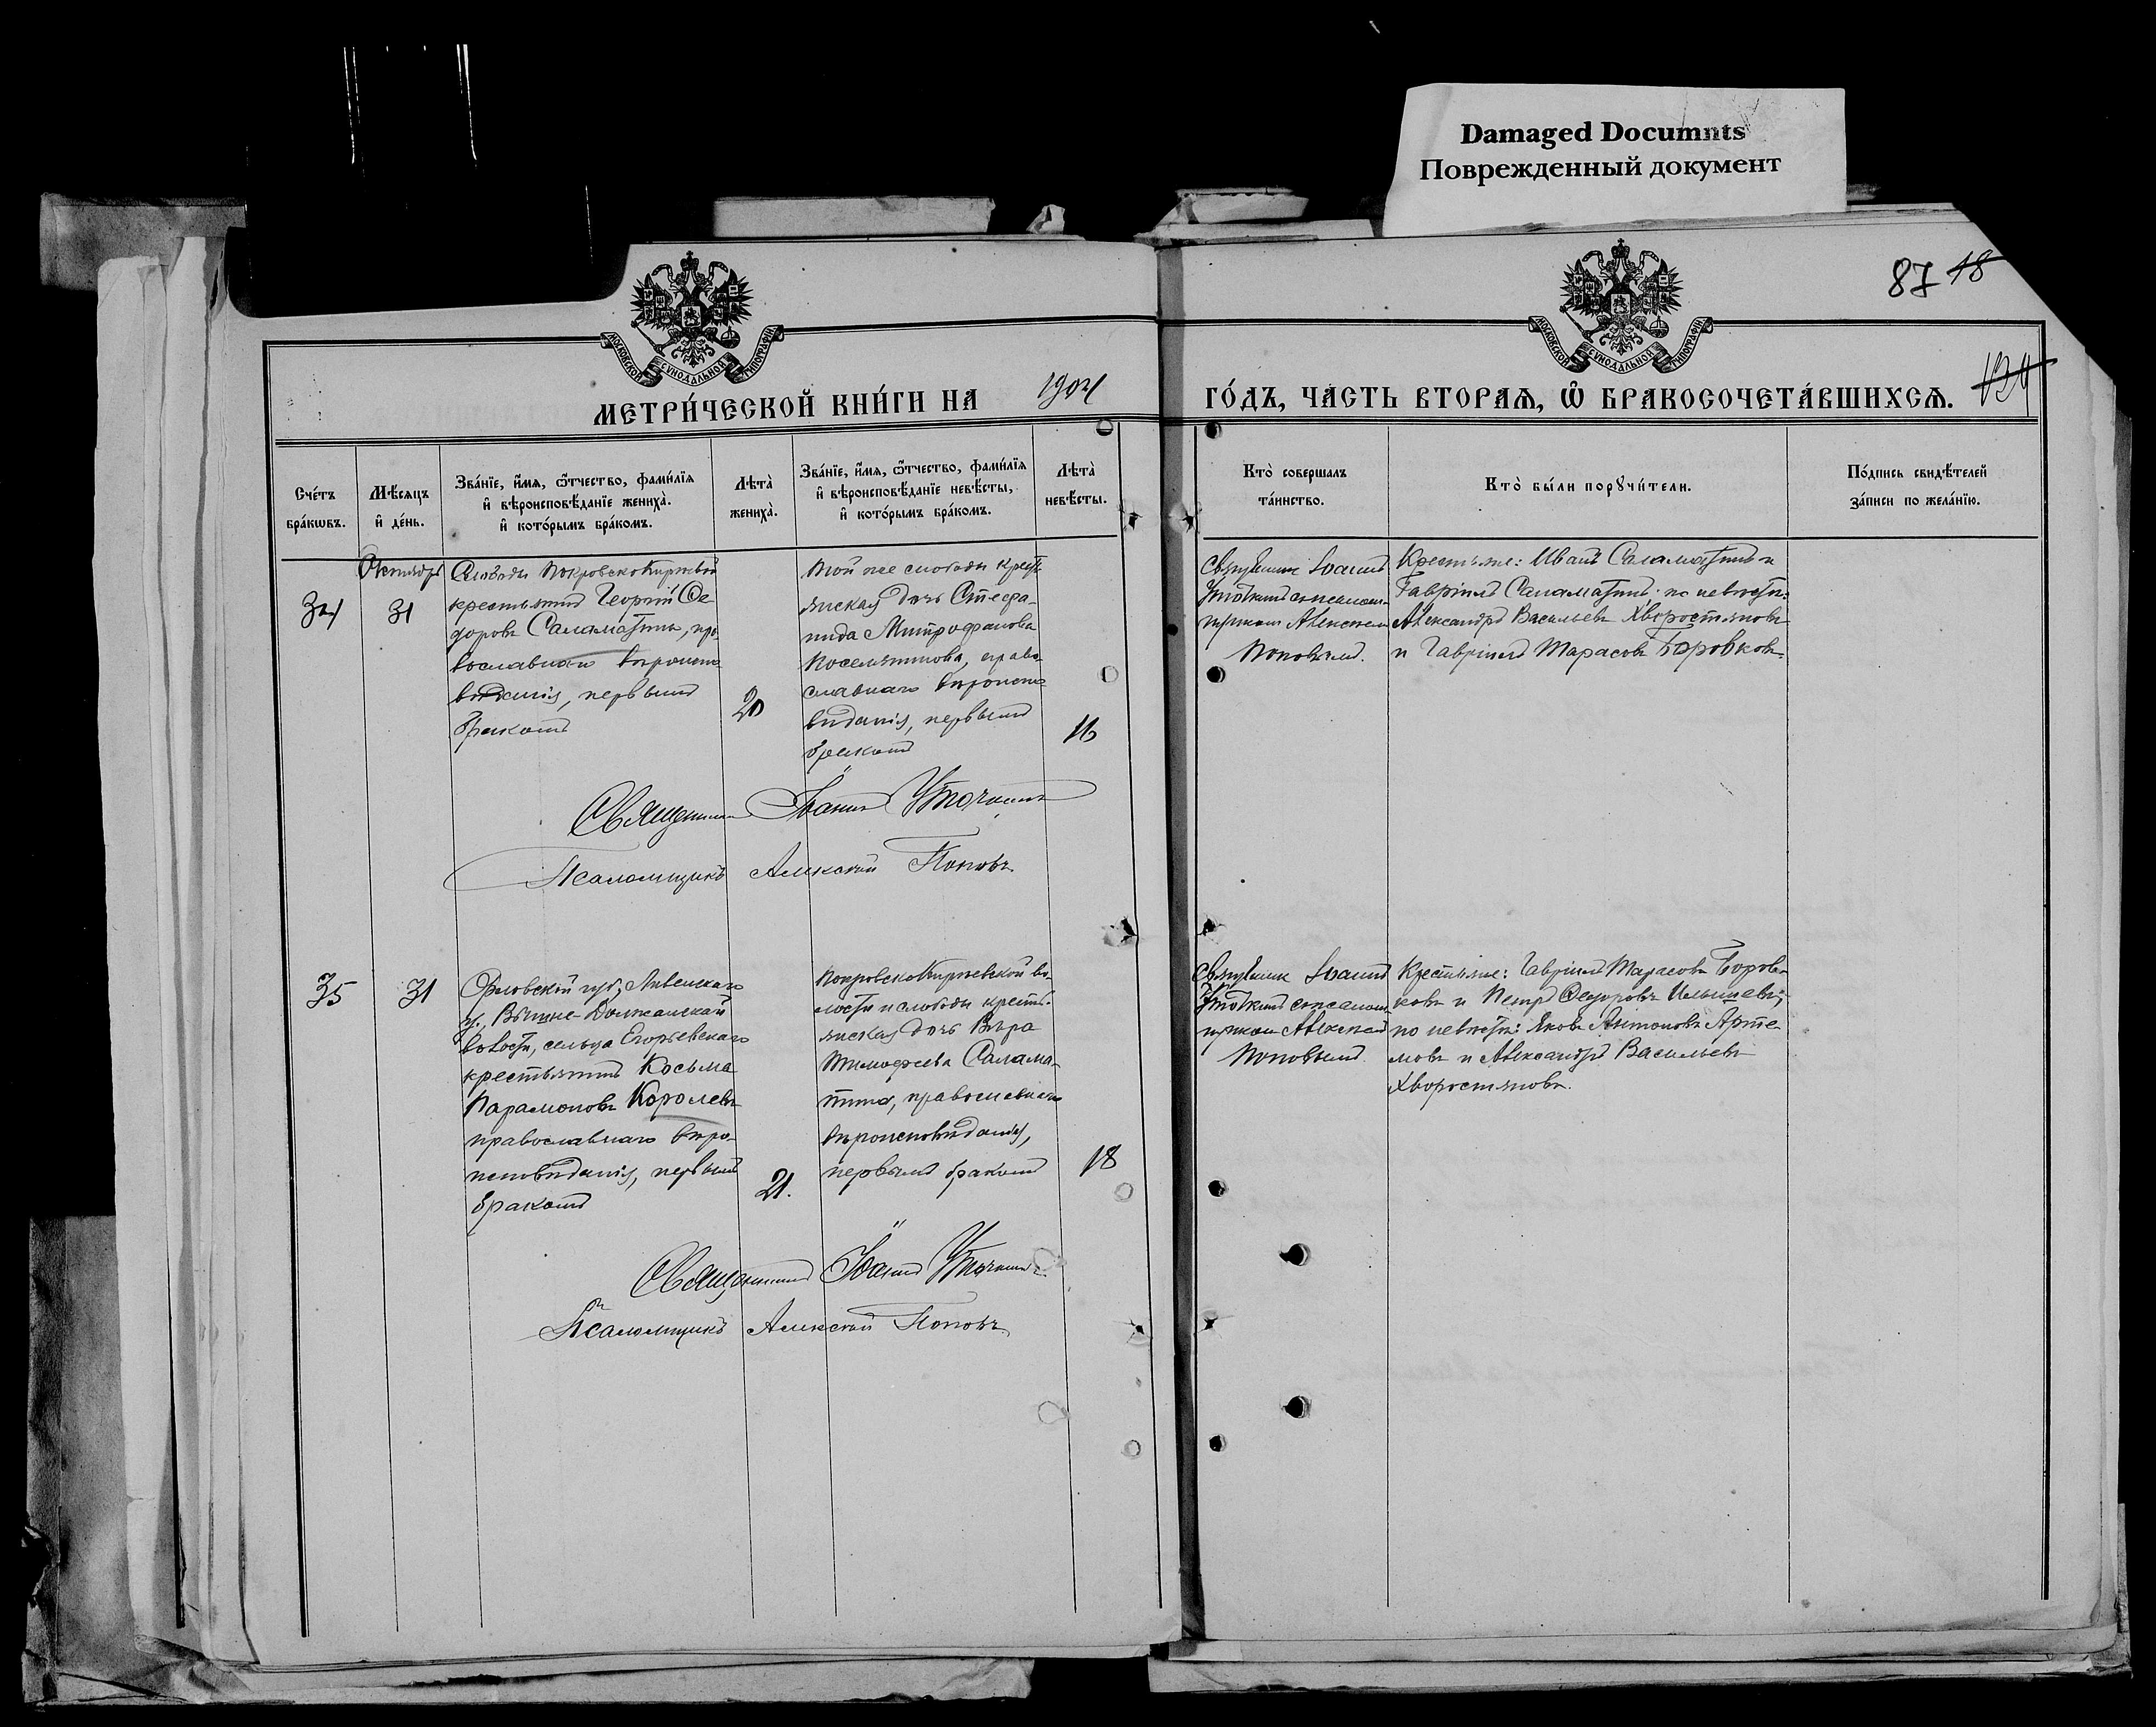 Damaged Documnts
Поврежденный документ
87 18
134
МОСКОВСКОЙ СѴНОДАЛЬНОЙ ТИПОГРАФІИ
МОСКОВСКОЙ СѴНОДАЛЬНОЙ ТИПОГРАФІИ
МЕТРИ́ЧЕСКОЙ КНИ́ГИ НА 1904 ГО́ДЪ, ЧАСТЬ ВТОРАѦ, Ѽ БРАКОСОЧЕТА́ВШИХСѦ.
Сче́тъ
бра́кѡвъ.
Мѣ́сѧцъ
и҆ де́нь.
Зва́нїе, и҆́мѧ, ѻ҆́тчество, фами́лїѧ
и҆ вѣроисповѣ́данїе жениха̀.
и҆ кото́рымъ бра́комъ.
Лѣта̀
жениха̀.
Зва́нїе, и҆́мѧ, ѻ҆́тчество, фами́лїѧ
и҆ вѣроисповѣ́данїе невѣ́сты,
и҆ кото́рымъ бра́комъ.
Лѣта̀
невѣ́сты.
Кто̀ совершалъ
та́инство.
Кто̀ бы́ли порꙋчи́тели.
По́дпись свидѣ́телей
за́писи по жела́нїю.
34
Октябрь
31
Слободы Покровско Киреевой
крестьянинъ Георгій Ѳе-
доровъ Саламатинъ, пра-
вославнаго вѣроиспо-
вѣданія, первымъ
бракомъ
20
Той же слободы кресть-
янская дочь Стефа-
нида Митрофанова
Поселянинова, право-
славнаго вѣроиспо-
вѣданія, первымъ
бракомъ
16
Священникъ Іоаннъ
съ псалом-
щикомъ Алексѣемъ
Поповымъ.
Крестьяне: Иванъ Саламатинъ и
Гавріилъ Саламатинъ; по невѣстѣ:
Александръ Васильевъ Хворостяновъ
и Гавріилъ Тарасовъ Боровковъ.
Священникъ Іоаннъ
Псаломщикъ Алексѣй Поповъ.
35
31
Орловской губ., Ливенскаго
у., Вышне-Должанской
волости, сельца Егорьевскаго
крестьянинъ Косьма
Парамоновъ Королевъ
православнаго вѣро-
исповѣданія, первымъ
бракомъ
21.
Покровско Киреевской во-
лости и слободы кресть-
янская дочь Вѣра
Тимофеева Салама-
тина, православнаго
вѣроисповѣданія,
первымъ бракомъ
18
Священникъ Іоаннъ
съ псалом-
щикомъ Алексѣемъ
Поповымъ.
Крестьяне: Гавріилъ Тарасовъ Боров-
ковъ и Петръ Ѳедоровъ
по невѣстѣ: Яковъ Антоновъ Арте-
мовъ и Александръ Васильевъ
Хворостяновъ.
Священникъ Іоаннъ
Псаломщикъ Алексѣй Поповъ.